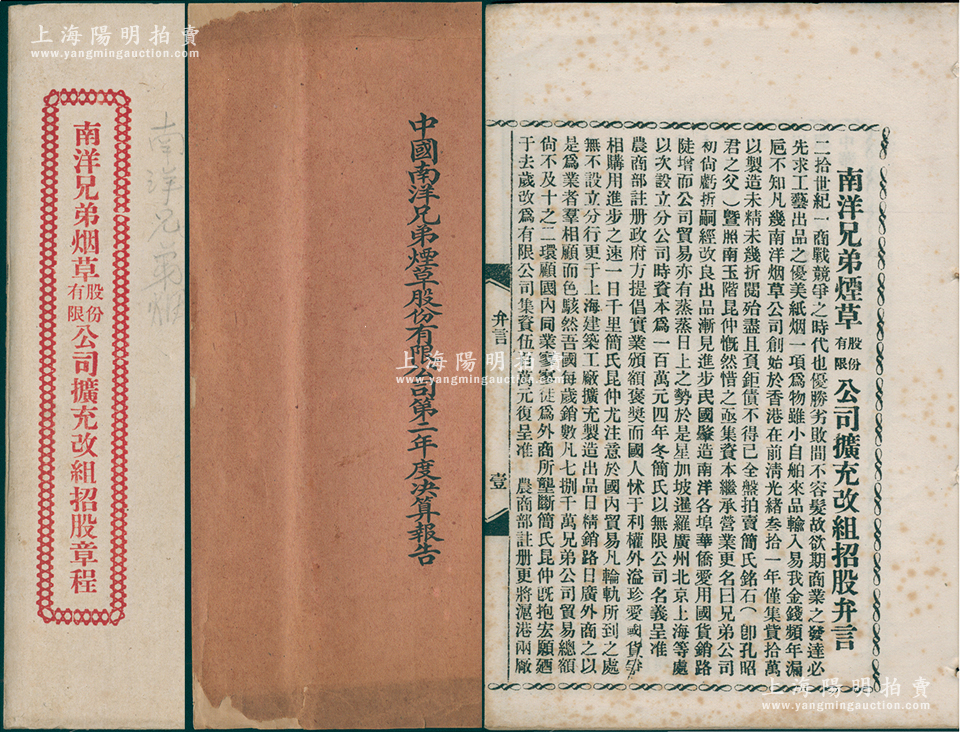 上海陽明拍賣
www.yangmingauction.com
南洋兄弟烟草股份有限公司擴充改組招股章程
南洋兄弟烟
上海陽明拍賣
www.yangmingauction.com
中國南洋兄弟煙草股份有限公司第二年度決算報告
南洋兄弟煙草股份有限公司擴充改組招股弁言
二拾世紀一商戰競爭之時代也優勝劣敗間不容髮故欲期商業之發達必
先求工藝出品之優美紙烟一項爲物雖小自舶來品輸入易我金錢頻年漏
巵不知凡幾南洋烟草公司創始於香港在前清光緒叁拾一年僅集貲拾萬
以製造未精未幾折閱殆盡且負鉅債不得已全盤拍賣簡氏銘石（卽孔昭
君之父）曁照南玉階昆仲慨然惜之亟集資本繼承營業更名曰兄弟公司
初尙虧折嗣經改良出品漸見進步民國肇造南洋各埠華僑愛用國貨銷路
陡增而公司貿易亦有蒸蒸日上之勢於是星加坡暹羅廣州北京上海等處
以次設立分公司時資本爲一百萬元四年冬簡氏以無限公司名義呈准
農商部註册政府方提倡實業頒額褒獎而國人怵于利權外溢珍愛國貨爭
相購用進步之速一日千里簡氏昆仲尤注意於國內貿易凡輪軌所到之處
無不設立分行更于上海建築工廠擴充製造出品日精銷路日廣外商之以
是爲業者羣相顧而色駭然吾國每歲銷數凡七捌千萬兄弟公司貿易總額
尙不及十之二環顧國內同業寥寥徒爲外商所壟斷簡氏昆仲旣抱宏願廼
于去歲改爲有限公司集資伍百萬元復呈准　農商部註册更將滬港兩廠
弁言
壹
上海陽明拍賣
www.yangmingauction.com
上海陽明拍賣
www.yangmingauction.com